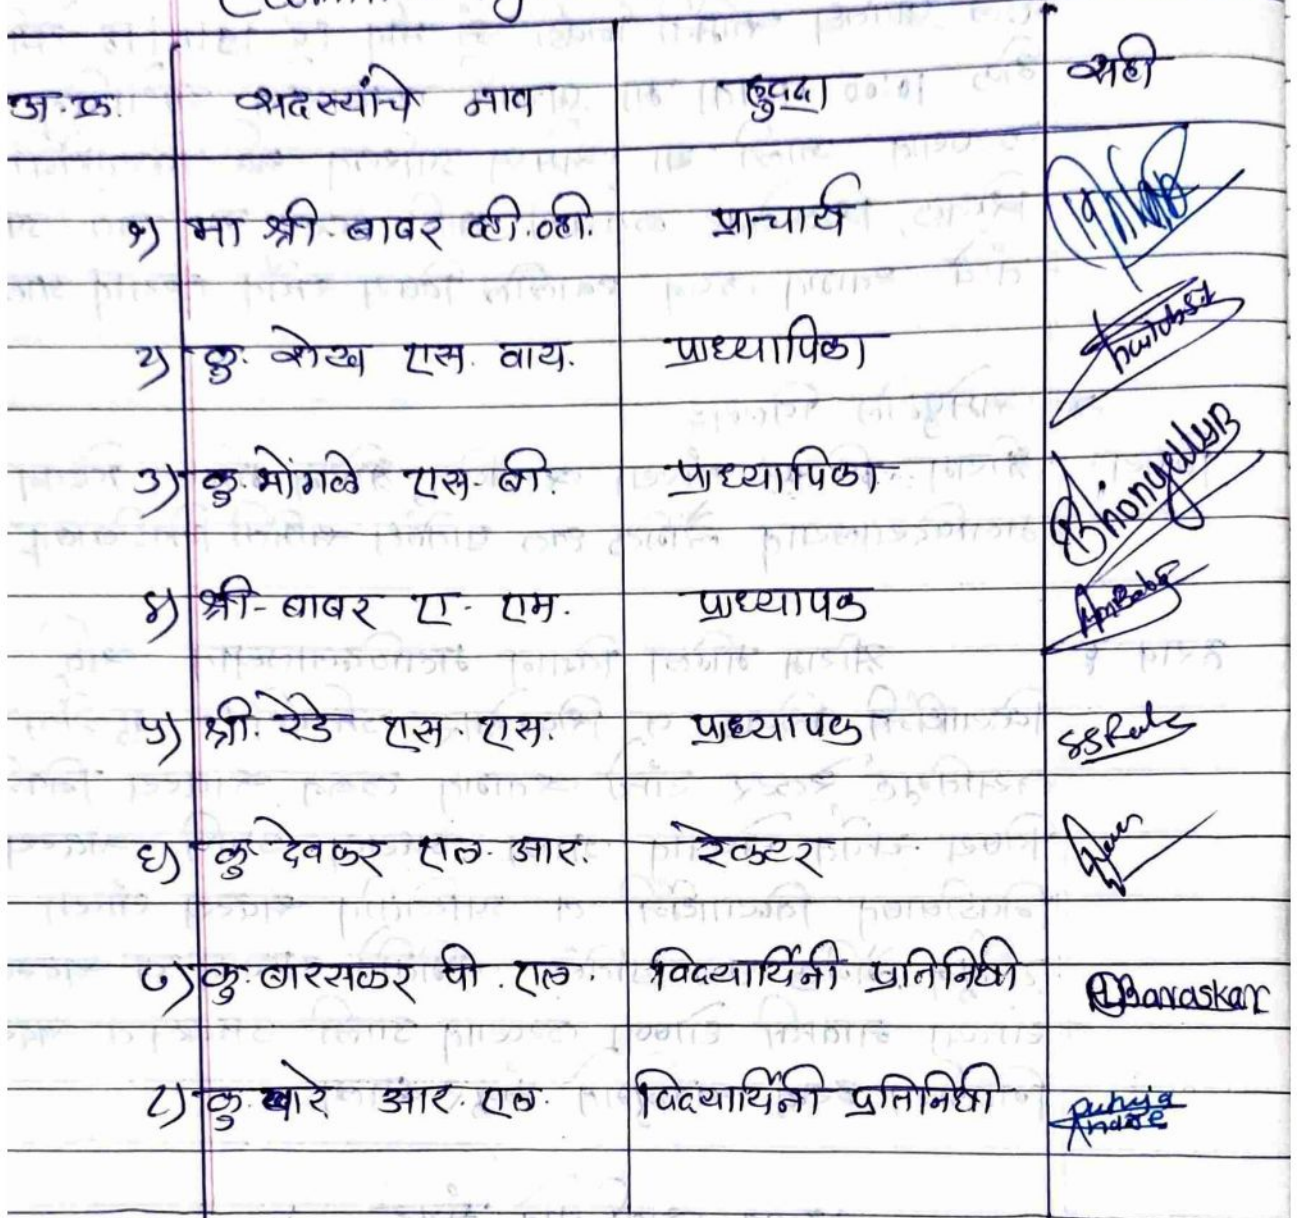 अ.क्र. सदस्यांचे नाव हुद्दा सही
१) मा श्री. बाबर व्ही. व्ही. प्राचार्य
२) कु. शेख एस. वाय. प्राध्यापिका
३) कु भोंगळे एस. बी. प्राध्यापिका BhongaleSB
४) श्री- बाबर ए. एम. प्राध्यापक AmBabar
५) श्री. रेडे एस. एस. प्राध्यापक
६) कु देवकर एल. आर. रेक्टर
७) कु. बारसकर पी. एल. विद्यार्थिनी प्रतिनिधी PLBaraskar
८) कु. आर. एल. विद्यार्थिनी प्रतिनिधी